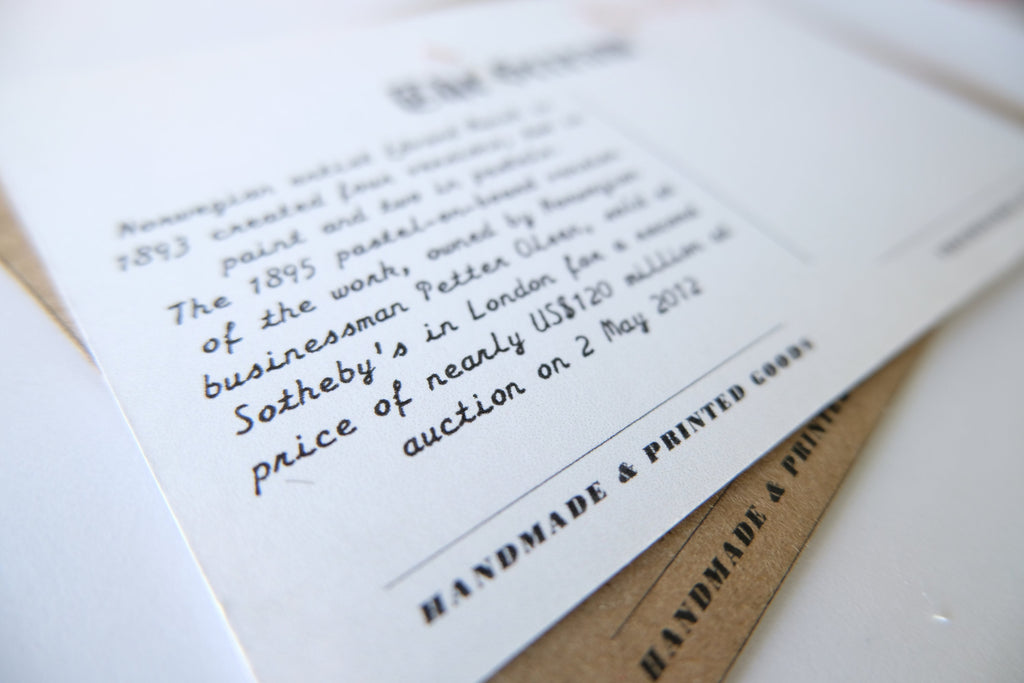 The Scream
Norwegian artist Edvard Munch in
1893 created four versions, two in
paint and two in pastels.
The 1895 pastel-on-board version
of the work, owned by Norwegian
businessman Petter Olsen, sold at
Sotheby's in London for a record
price of nearly US$120 million at
auction on 2 May 2012
HANDMADE & PRINTED GOODS
HANDMADE & PRINTED